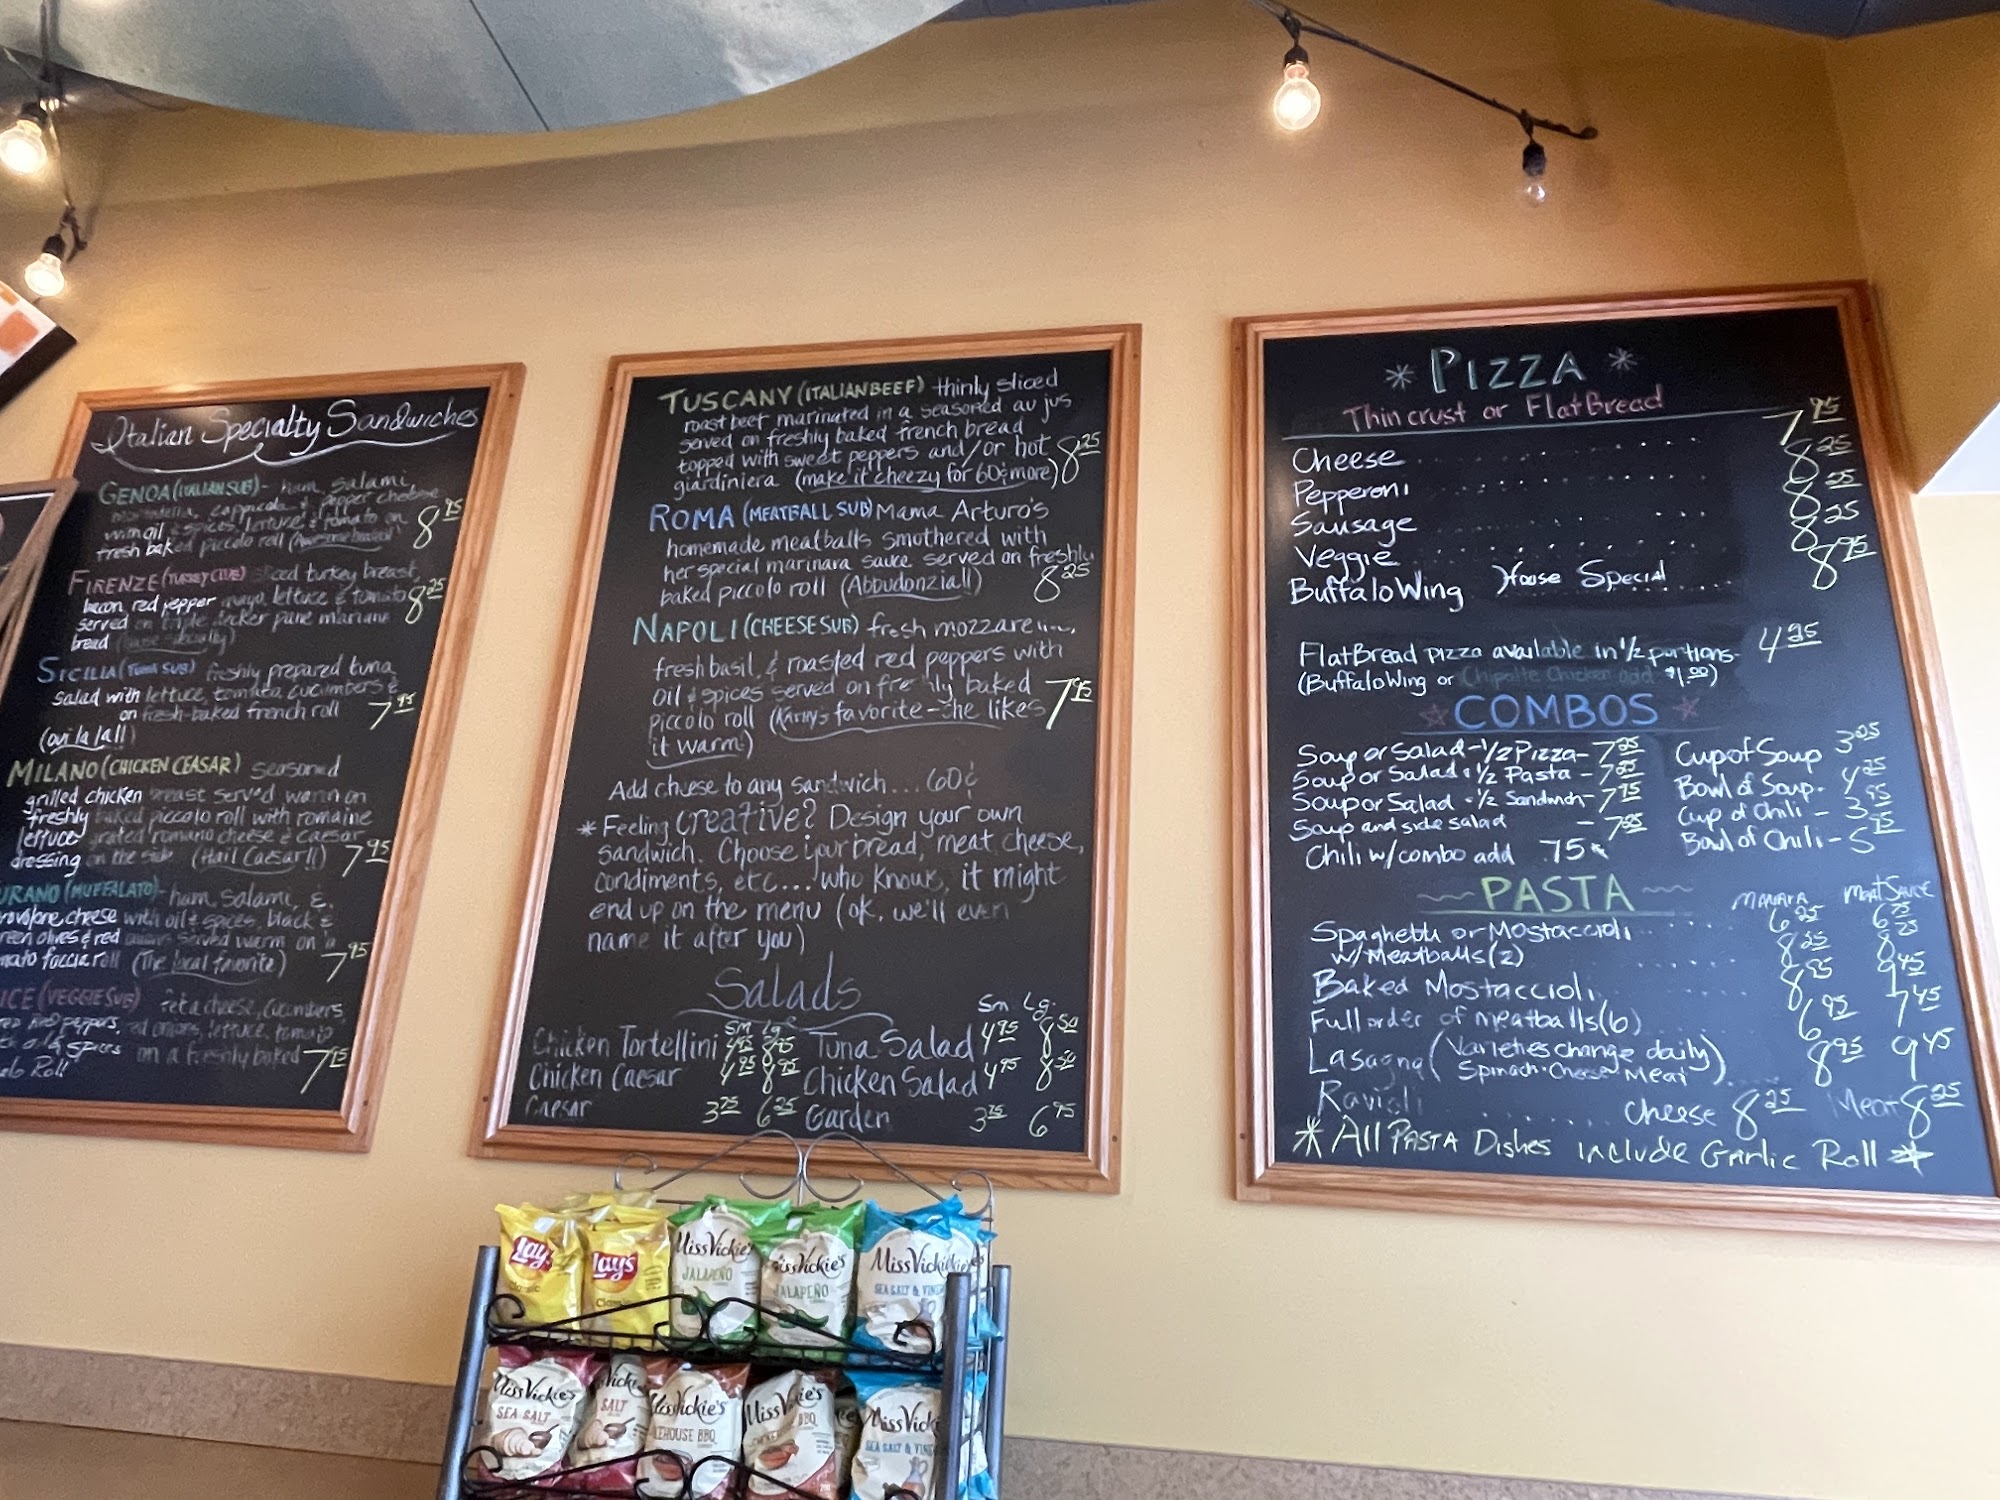 Italian Specialty Sandwiches
GENOA (ITALIAN SUB) - ham, salami,
cappicola & pepper cheese
oil & spices, lettuce & tomato on
fresh baked piccolo roll
8.95
FIRENZE (TURKEY CLUB) sliced turkey breast,
bacon, red pepper mayo, lettuce & tomato
served on triple decker pane
bread
8.25
SICILIA (TUNA SUB) freshly prepared tuna
salad with lettuce, tomato, cucumbers &
on fresh-baked french roll 7.95
(oui la la!!)
MILANO (CHICKEN CEASAR) seasoned
grilled chicken breast served warm on
freshly baked piccolo roll with romaine
lettuce grated romano cheese & caesar
dressing on the side (Hail Caesar!!) 7.95
URANO (MUFFALATO) - ham, salami, &
rovolone cheese with oil & spices, black &
reen olives & red onions served warm on a
mato foccia roll (The local favorite) 7.95
ICE (VEGGIE SUB) feta cheese, cucumbers,
red peppers, red onions, lettuce, tomato
spices on a freshly baked 7.95
Roll
TUSCANY (ITALIAN BEEF) thinly sliced
roast beef marinated in a seasoned au jus
served on freshly baked french bread
topped with sweet peppers and/or hot
giardiniera (make it cheezy for 60¢ more) 8.25
ROMA (MEATBALL SUB) Mama Arturo's
homemade meatballs smothered with
her special marinara sauce served on freshly
baked piccolo roll (Abbudonzia!!) 8.25
NAPOLI (CHEESE SUB) fresh
fresh basil, & roasted red peppers with
oil & spices served on fre hly baked
piccolo roll (Kathy's favorite - she likes 7.95
it warm!)
Add cheese to any sandwich... 60¢
* Feeling creative? Design your own
sandwich. Choose your bread, meat cheese,
condiments, etc... who knows, it might
end up on the menu (ok, we'll even
name it after you)
Salads
Sm Lg Sm. Lg.
Chicken Tortellini 4.95 8.95 Tuna Salad 4.95 8.50
Chicken Caesar 4.95 8.95 Chicken Salad 4.95 8.50
Caesar 3.75 6.25 Garden 3.75 6.95
* PIZZA *
Thin crust or FlatBread
Cheese ........ 7.95
Pepperoni ........ 8.25
Sausage ........ 8.25
Veggie ........ 8.25
Buffalo Wing House Special .... 8.95
FlatBread pizza available in 1/2 portions- 4.25
(Buffalo Wing or Chipotle Chicken add $1.00)
COMBOS
Soup or Salad - 1/2 Pizza - 7.25 Cup of Soup 3.05
Soup or Salad & 1/2 Pasta - 7.25 Bowl of Soup. 4.25
Soup or Salad - 1/2 Sandwich - 7.95 Cup of Chili - 3.95
Soup and side salad - 7.25 Bowl of Chili - 5.95
Chili w/combo add .75
~~ PASTA ~~
MARINARA MEAT SAUCE
Spaghetti or Mostaccioli ...... 6.25 6.75
w/Meatballs (2) ..... 8.25 8.75
Baked Mostaccioli ..... 8.95 9.45
Full order of meatballs (6) .... 6.95 7.45
Lasagna (Varieties change daily) ... 8.95 9.45
Spinach · Cheese · Meat
Ravioli ..... Cheese 8.25 Meat 8.25
* All PASTA Dishes include Garlic Roll *
Lay's
Classic
Lay's
Miss Vickie's
JALAPEÑO
Miss Vickie's
JALAPEÑO
Miss Vickie's
SEA SALT & VINE
Miss Vickie's
SEA SALT
Vickie
SALT
Miss Vickie's
EHOUSE BBQ
Miss Vickie's
BBQ
Miss Vicki
SEA SALT & VINE